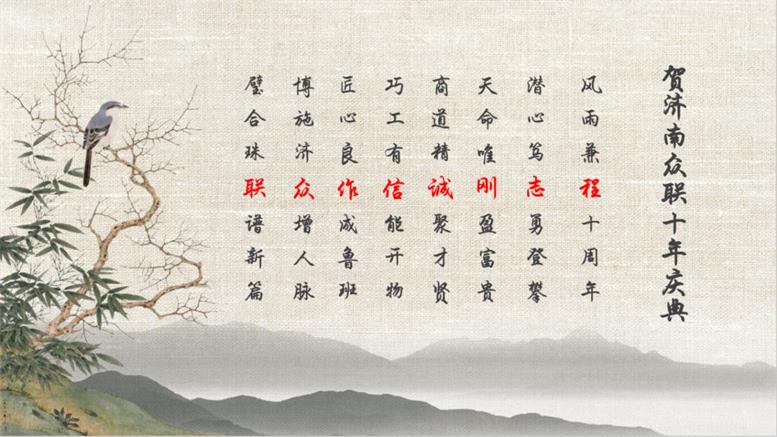 贺济南众联十年庆典
风雨兼程十周年
潜心笃志勇登攀
天命唯刚盈富贵
商道精诚聚才贤
巧工有信能开物
匠心良作成鲁班
博施济众增人脉
璧合珠联谱新篇